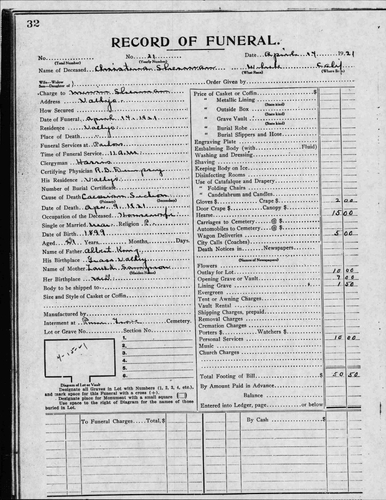 32
RECORD OF FUNERAL.
No. No. 21 Date April 17 1921
(Total Number) (Yearly Number)
Name of Deceased Christina Sherman White Calif
(What Race) (Where Born)
Order Given by
Charge to Sherman
Address Vallejo
How Secured
Date of Funeral April 17. 1921
Residence Vallejo
Place of Death
Funeral Services at Parlors
Time of Funeral Service
Clergyman Harris
Certifying Physician
His Residence Vallejo
Number of Burial Certificate
Cause of Death
(Primary) (Secondary)
Date of Death 1921
Occupation of the Deceased Housewife
Single or Married Religion
Date of Birth 1899
Aged 21 Years, Months, Days.
Name of Father Albert
His Birthplace Grass Valley
Name of Mother
Her Birthplace
Body to be shipped to
Size and Style of Casket or Coffin
Manufactured by
Interment at Cemetery.
Lot or Grave No. Section No.
1
2
3
4
5
6
Diagram of Lot or Vault
Designate all Graves in Lot with Numbers (1, 2, 3, 4, etc.), and mark space for this Funeral with a cross (+)
Designate place for Monument with a small square
Use space to right of Diagram for names of those buried in Lot.
Price of Casket or Coffin
" Metallic Lining
" Outside Box
" Grave Vault
" Burial Robe
" Burial Slippers and Hose
Engraving Plate
Embalming Body (with Fluid)
Washing and Dressing
Shaving
Keeping Body on Ice
Disinfecting Rooms
Use of Catafalque and Drapery
" Folding Chairs
" Candelabrum and Candles
Gloves $ Crape $ 2 00
Door Crape $ Canopy $
Hearse 15 00
Carriages to Cemetery @ $
Automobiles to Cemetery @ $
Wagon Deliveries 5 00
City Calls (Coaches)
Death Notices in Newspapers
(Names of Newspapers)
Flowers
Outlay for Lot 10 00
Opening Grave or Vault 7 00
Lining Grave 1 50
Evergreen
Tent or Awning Charges
Vault Rental
Shipping Charges, prepaid
Removal Charges
Cremation Charges
Porters $ Watchers $
Personal Services 10 00
Music
Church Charges
Total Footing of Bill $ 50 50
By Amount Paid in Advance
Balance
Entered into Ledger, page or below
To Funeral Charges. Total $
By Cash $